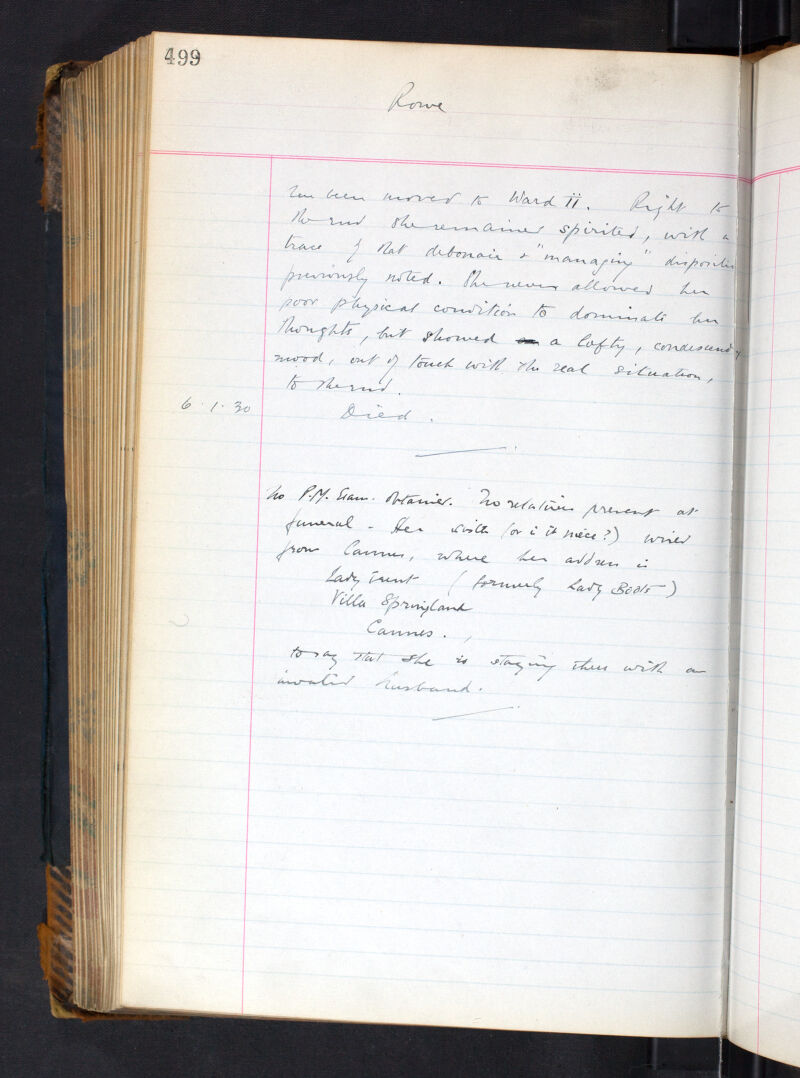 499
Rowe
has been moved to Ward II. Right to
the end she remained spirited, with a
trace of that debonair & "managing" disposition
previously noted. She never allowed her
poor physical condition to dominate her
thoughts, but showed a lofty, condescending
mood, out of touch with the real situation,
to the end.
6.1.30 Died.
No P.M. Exam. obtained. No relatives present at
funeral - Her sister (or is it niece?) wired
from Cannes, where her address is
Lady (formerly Lady Boots)
Villa Springland
Cannes.,
to say that she is staying there with an
invalid husband.